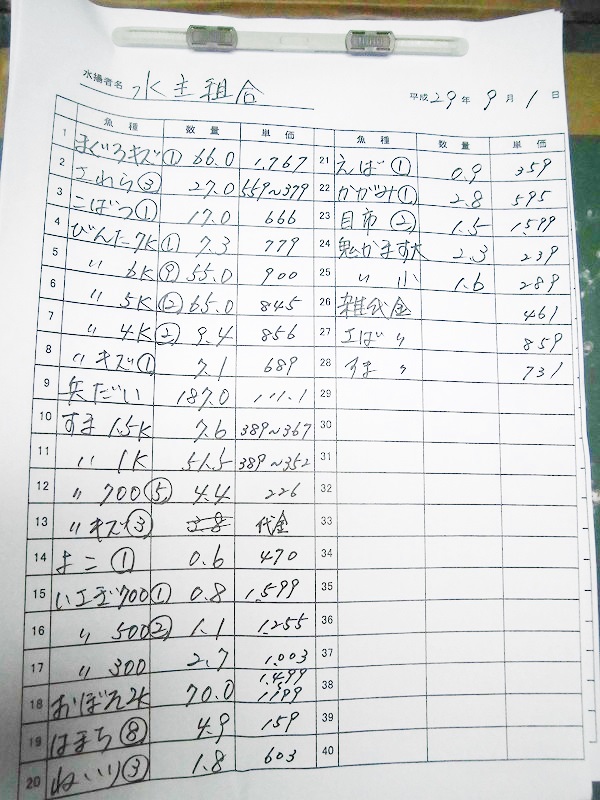 水揚者名 水主組合
平成29年 9月 1日
魚種 数量 単価
1 まぐろキズ① 66.0 1,767
2 さわら③ 27.0 559~379
3 こばつ① 17.0 666
4 びんた7K① 7.3 779
5 〃 6K⑨ 55.0 900
6 〃 5K⑫ 65.0 845
7 〃 4K② 9.4 856
8 〃キズ① 7.1 689
9 兵だい 187.0 111.1
10 すま 1.5K 7.6 389~367
11 〃 1K 51.5 389~352
12 〃 700⑤ 4.4 226
13 〃キズ③ 代金
14 よこ① 0.6 470
15 700① 0.8 1,599
16 〃 500② 1.1 1,255
17 〃 300 2.7 1,003
18 おぼそ2K 70.0 1,499 1,199
19 はまち⑧ 4.9 159
20 ねいり③ 1.8 603
魚種 数量 単価
21 えば① 0.9 359
22 かがみ① 2.8 595
23 目市② 1.5 1,599
24 かます大 2.3 239
25 〃 小 1.6 289
26 雑代金 461
27 えば 〃 859
28 すま 〃 731
29
30
31
32
33
34
35
36
37
38
39
40